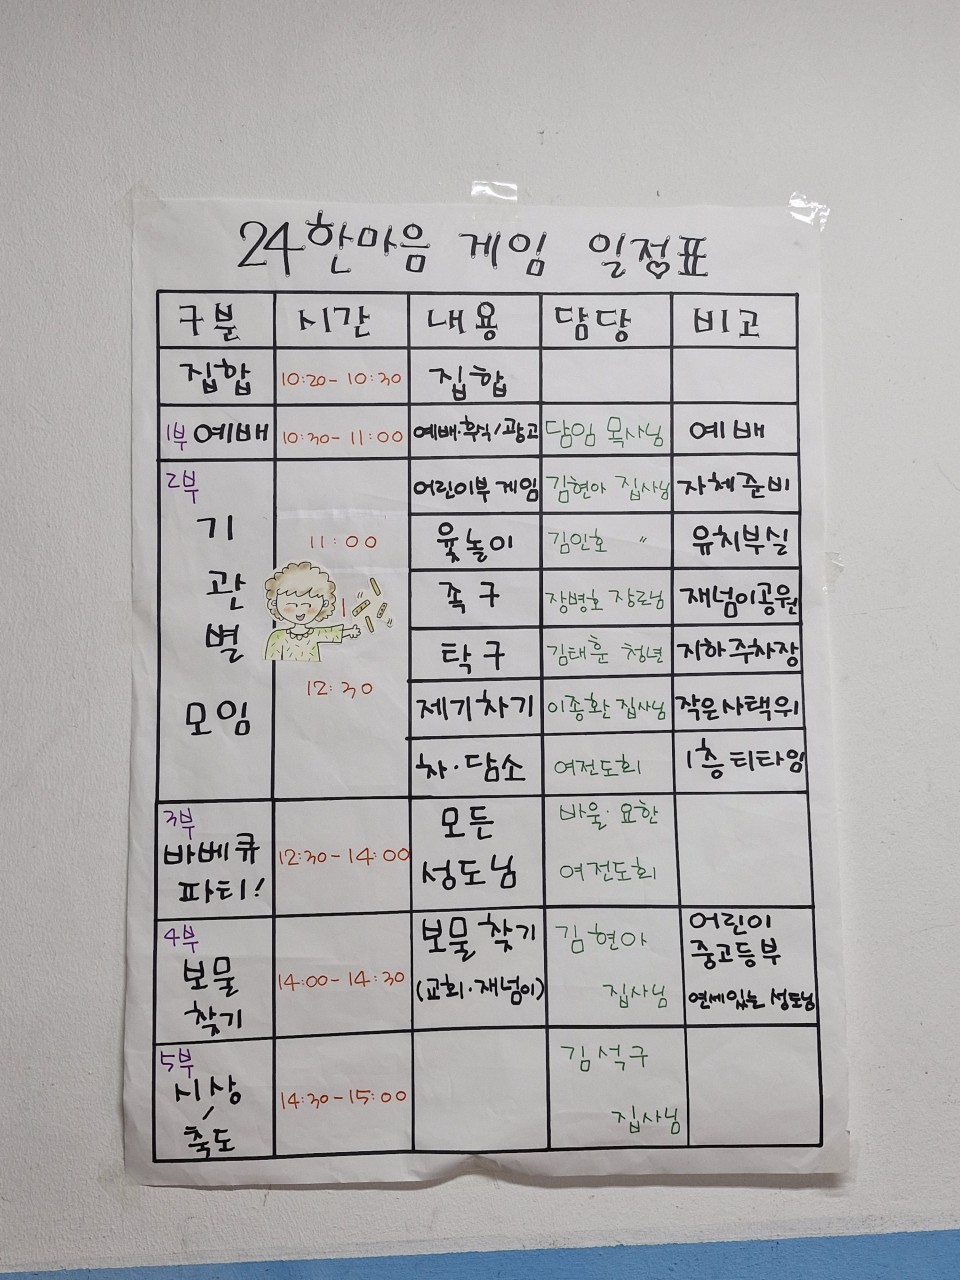 24한마음 게임 일정표
구분 시간 내용 담당 비고
집합 10:20-10:30 집합
1부 예배 10:30-11:00 예배·후식/광고 담임 목사님 예배
2부
기
관
별
모임
11:00
12:30
어린이부 게임 김현아 집사님 자체준비
윷놀이 김인호 〃 유치부실
족구 장병호 장로님 재넘이공원
탁구 김태훈 청년 지하주차장
제기차기 이종환 집사님 작은사택위
차·담소 여전도회 1층 티타임
3부
바베큐
파티!
12:30-14:00
모든
성도님
바울·요한
여전도회
4부
보물
찾기
14:00-14:30
보물찾기
(교회·재넘이)
김현아
집사님
어린이
중고등부
연세있는 성도님
5부
시상
/
축도
14:30-15:00
김석구
집사님